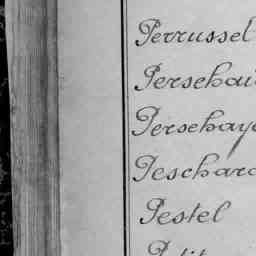 Perrussel
Persehai
Persehaye
Peschard
Pestel
Petit